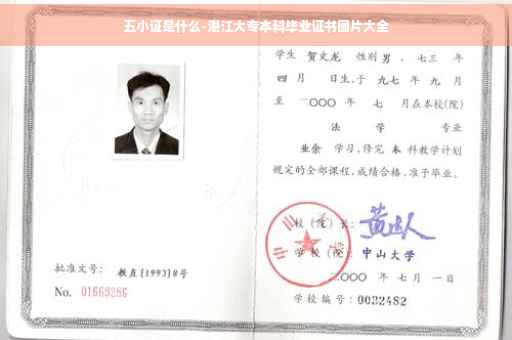 五小证是什么-湛江大专本科毕业证书图片大全
学生 贺文龙 性别 男 、七三 年
四 月 日生,于 九七 年 九 月
至 二〇〇〇 年 七 月在本校(院)
法 学 专业
业余 学习,修完 本 科教学计划
规定的全部课程,成绩合格,准予毕业。
校(院)长:
学 校(院): 中山大学
二〇〇〇 年 七 月 一 日
学校编号: 0032482
批准文号: 教直[1993]8号
No. 01663286